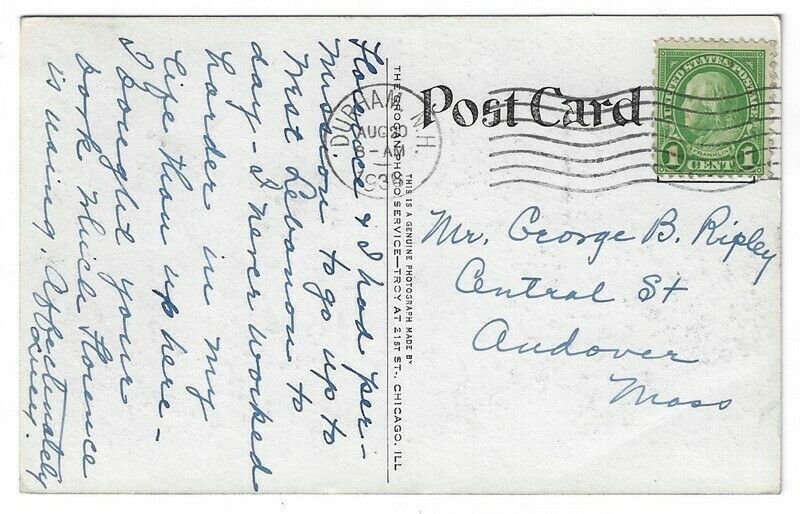 Florence & I had per-
mission to go up to
Mst Lebanon to
day - I never worked
harder in my
life than up here -
I bought your
book which Florence
is using. Affectionately
Lucy.
THE GROGAN PHOTO SERVICE-TROY AT 21ST ST., CHICAGO, ILL
THIS IS A GENUINE PHOTOGRAPH MADE BY
DURHAM, N.H.
AUG 20
8-AM
1938
Post Card
UNITED STATES POSTAGE
FRANKLIN
1 CENT 1
Mr. George B. Ripley
Central St
Andover
Mass